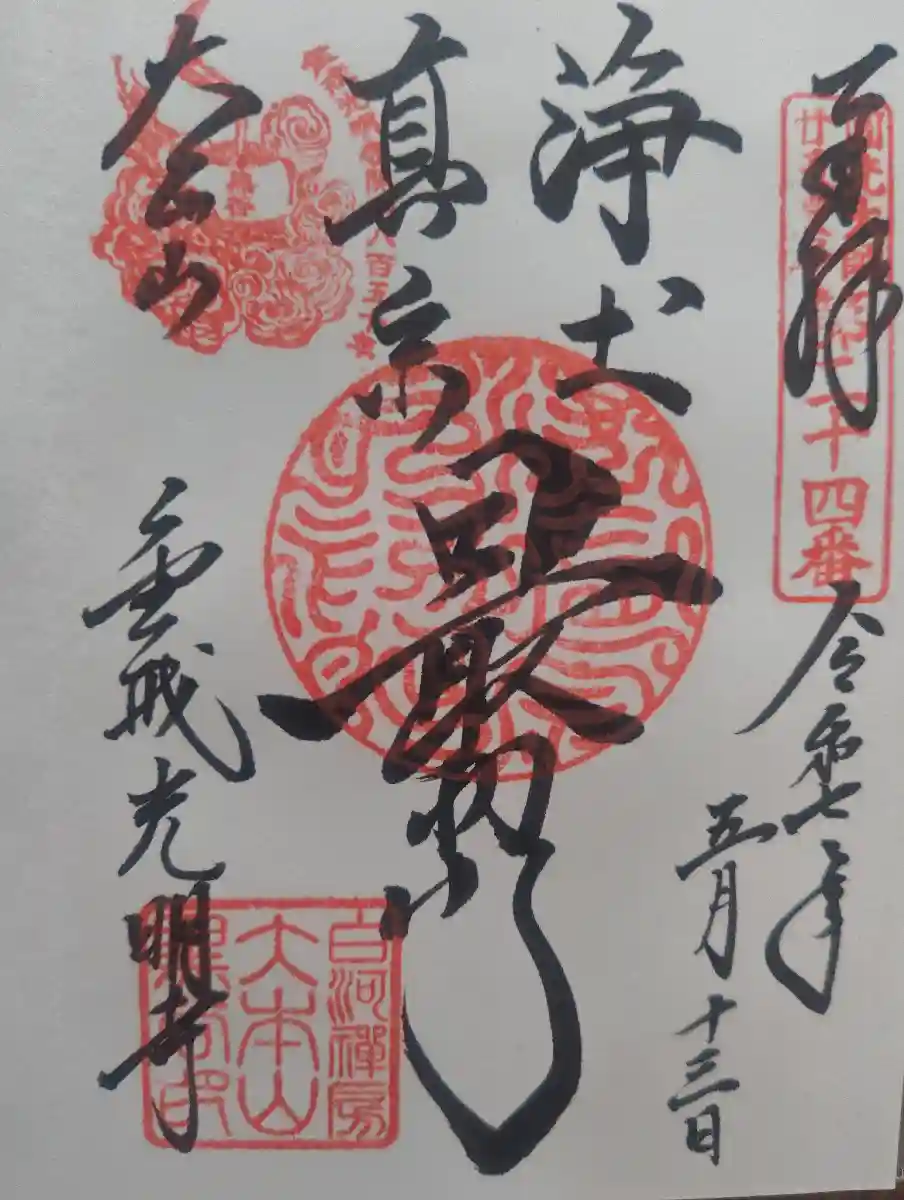 奉拝
二十四番
令和七年
五月十三日
浄土
真宗
最初門
八百五十年
大本山
金戒光明寺
白河禪房
大本山